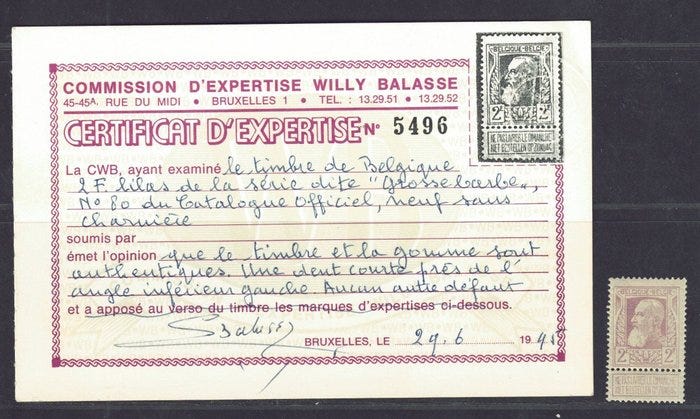 COMMISSION D'EXPERTISE WILLY BALASSE
45-45A. RUE DU MIDI • BRUXELLES 1 • TEL. : 13.29.51 • 13.29.52
CERTIFICAT D'EXPERTISE N° 5496
La CWB, ayant examiné le timbre de Belgique
2F lilas de la série dite "Grosse barbe",
N° 80 du Catalogue Officiel, neuf sans
charnière
soumis par
émet l'opinion que le timbre et la gomme sont
authentiques. Une dent courte près de l'
angle inférieur gauche. Aucun autre défaut
et a apposé au verso du timbre les marques d'expertises ci-dessous.
Balasse
BRUXELLES, LE 29.6 19
BELGIQUE-BELGIË
2F 2F
NE PAS LIVRER LE DIMANCHE
NIET BESTELLEN OP ZONDAG
BELGIQUE-BELGIË
2F 2F
NE PAS LIVRER LE DIMANCHE
NIET BESTELLEN OP ZONDAG